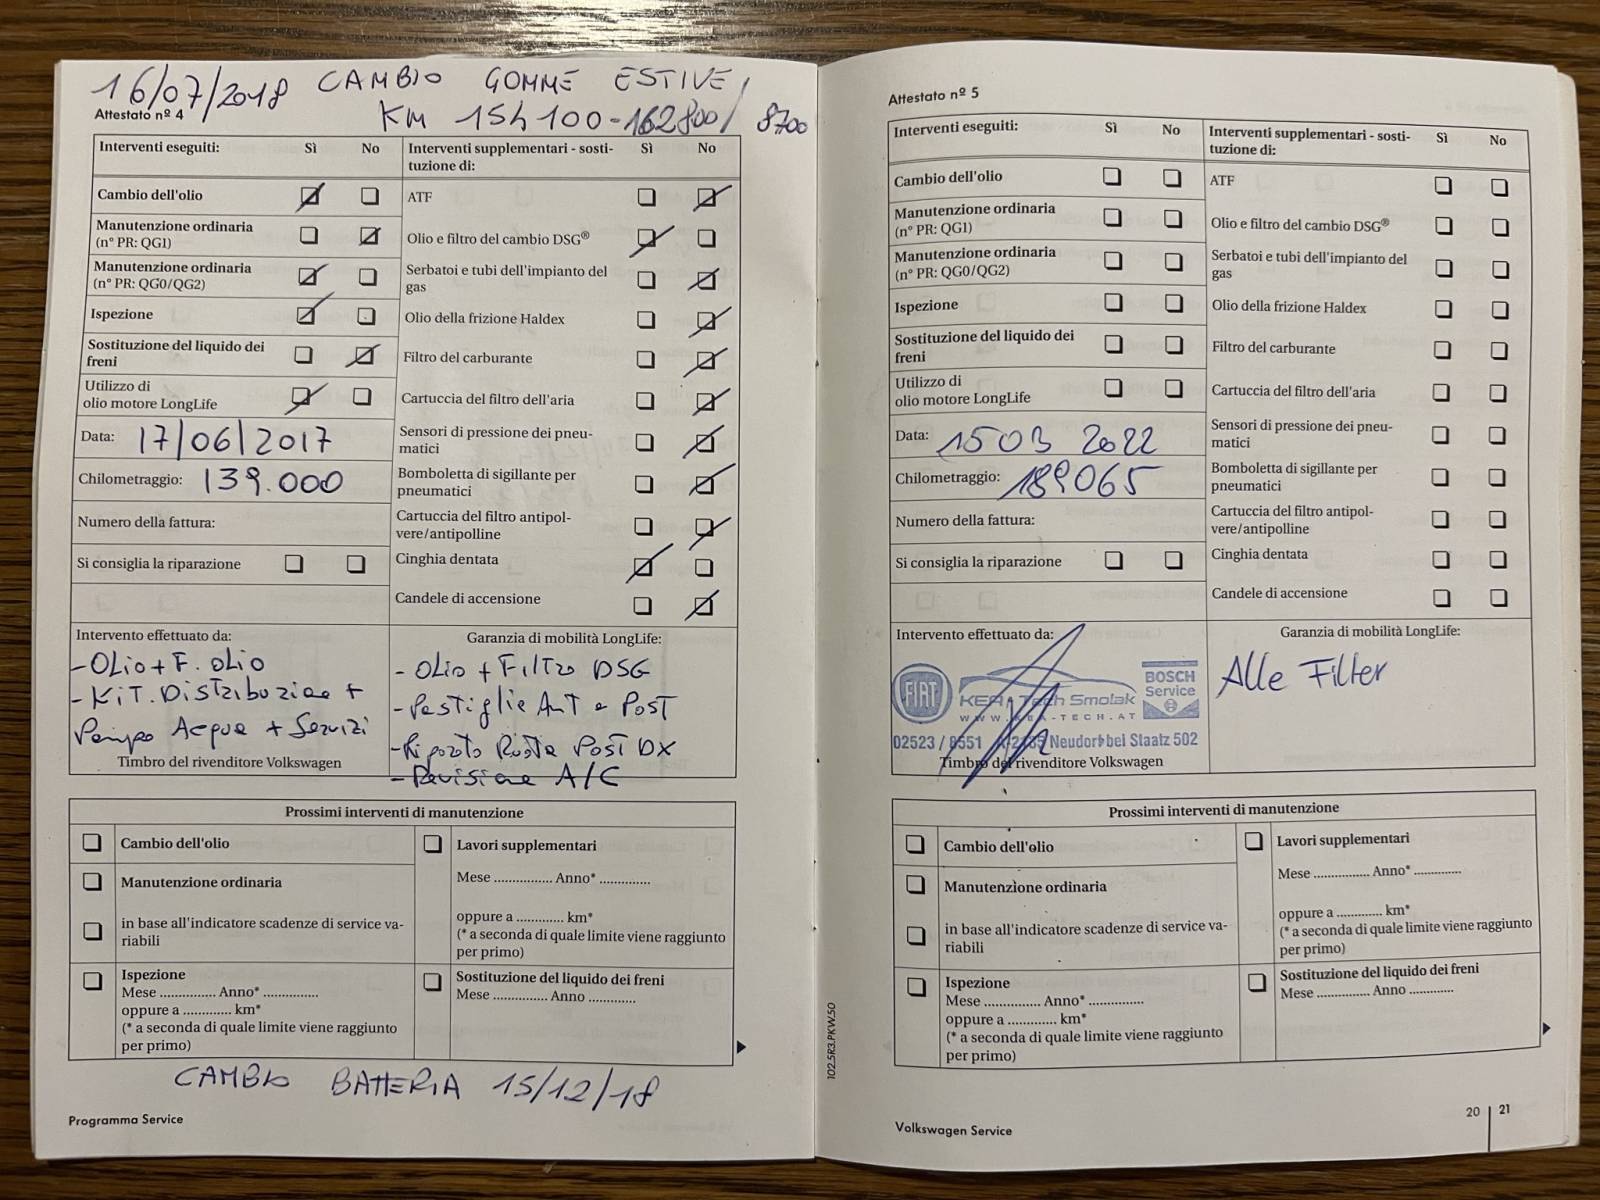 16/07/2018 CAMBIO GOMME ESTIVE
KM 154100-162800/8700
Attestato nº 4
Interventi eseguiti: Sì No
Cambio dell'olio
Manutenzione ordinaria
(n° PR: QG1)
Manutenzione ordinaria
(n° PR: QG0/QG2)
Ispezione
Sostituzione del liquido dei
freni
Utilizzo di
olio motore LongLife
Data: 17/06/2017
Chilometraggio: 139.000
Numero della fattura:
Si consiglia la riparazione
Interventi supplementari - sosti-
tuzione di: Sì No
ATF
Olio e filtro del cambio DSG®
Serbatoi e tubi dell'impianto del
gas
Olio della frizione Haldex
Filtro del carburante
Cartuccia del filtro dell'aria
Sensori di pressione dei pneu-
matici
Bomboletta di sigillante per
pneumatici
Cartuccia del filtro antipol-
vere/antipolline
Cinghia dentata
Candele di accensione
Intervento effettuato da:
- OLio + F. OLIO
- KiT. Distribuzione +
Pompa Acqua + Servizi
Timbro del rivenditore Volkswagen
Garanzia di mobilità LongLife:
- OLio + FiLTro DSG
- Pastiglie AnT e POST
- POST DX
- Revisione A/C
Prossimi interventi di manutenzione
Cambio dell'olio
Manutenzione ordinaria
in base all'indicatore scadenze di service va-
riabili
Ispezione
Mese ............... Anno* ...............
oppure a ............. km*
(* a seconda di quale limite viene raggiunto
per primo)
Lavori supplementari
Mese ................ Anno* ..............
oppure a ............. km*
(* a seconda di quale limite viene raggiunto
per primo)
Sostituzione del liquido dei freni
Mese ............... Anno .............
CAMBIO BATTERIA 15/12/18
Programma Service
Attestato nº 5
Interventi eseguiti: Sì No
Cambio dell'olio
Manutenzione ordinaria
(n° PR: QG1)
Manutenzione ordinaria
(n° PR: QG0/QG2)
Ispezione
Sostituzione del liquido dei
freni
Utilizzo di
olio motore LongLife
Data: 15 03 2022
Chilometraggio: 189065
Numero della fattura:
Si consiglia la riparazione
Interventi supplementari - sosti-
tuzione di: Sì No
ATF
Olio e filtro del cambio DSG®
Serbatoi e tubi dell'impianto del
gas
Olio della frizione Haldex
Filtro del carburante
Cartuccia del filtro dell'aria
Sensori di pressione dei pneu-
matici
Bomboletta di sigillante per
pneumatici
Cartuccia del filtro antipol-
vere/antipolline
Cinghia dentata
Candele di accensione
Intervento effettuato da:
FIAT
KEA-Tech Smolak
WWW.KEA-TECH.AT
BOSCH
Service
02523 / 8551 A-2135 Neudorf bei Staatz 502
Timbro del rivenditore Volkswagen
Garanzia di mobilità LongLife:
Alle Filter
Prossimi interventi di manutenzione
Cambio dell'olio
Manutenzione ordinaria
in base all'indicatore scadenze di service va-
riabili
Ispezione
Mese ............... Anno* ...............
oppure a ............. km*
(* a seconda di quale limite viene raggiunto
per primo)
Lavori supplementari
Mese ............... Anno* .............
oppure a ............ km*
(* a seconda di quale limite viene raggiunto
per primo)
Sostituzione del liquido dei freni
Mese ............. Anno ............
102.5R3.PKW.50
Volkswagen Service
20 | 21